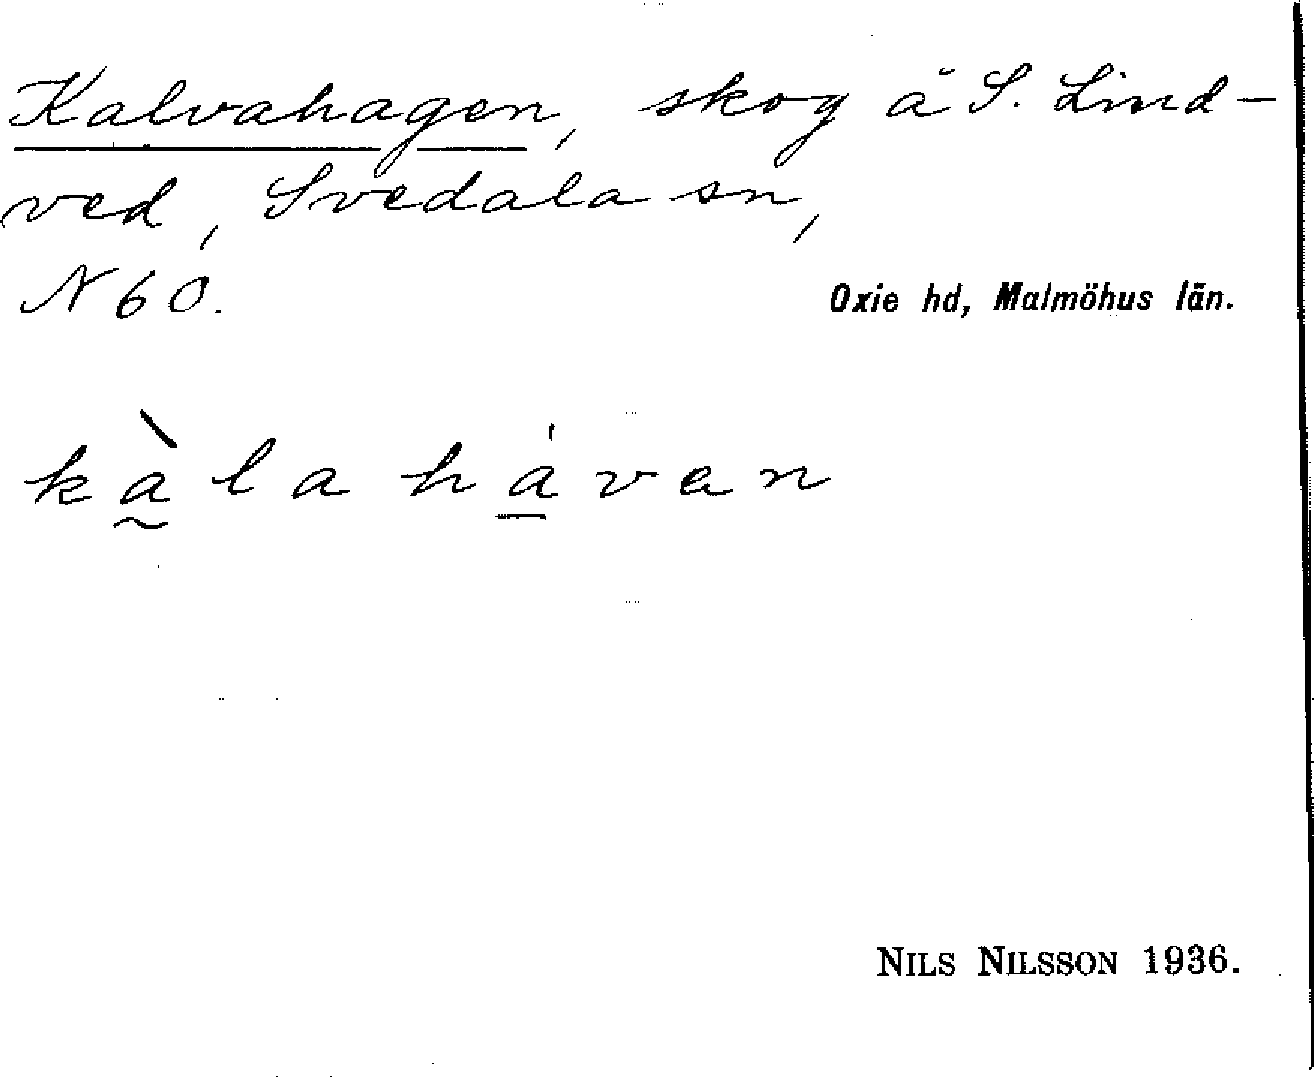 Kalvahagen, skog å S. Lind-
ved, Svedala sn,
N 60.
Oxie hd, Malmöhus län.
kàlahávan
NILS NILSSON 1936.